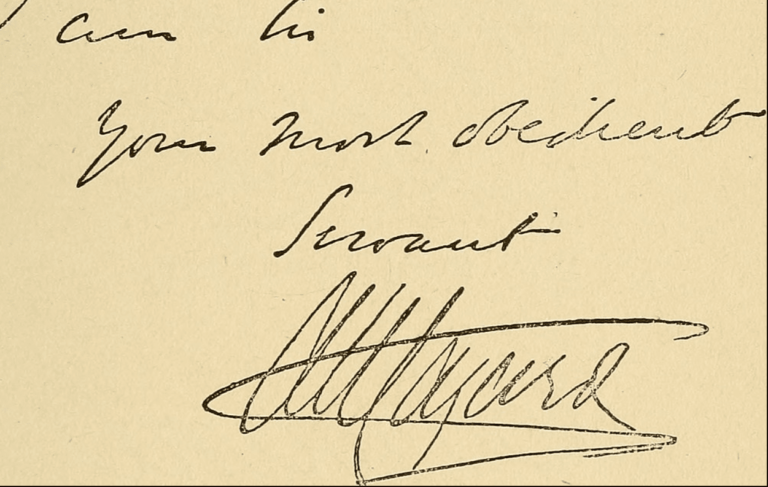 am Sir
Your most obedient
Servant
AHLayard